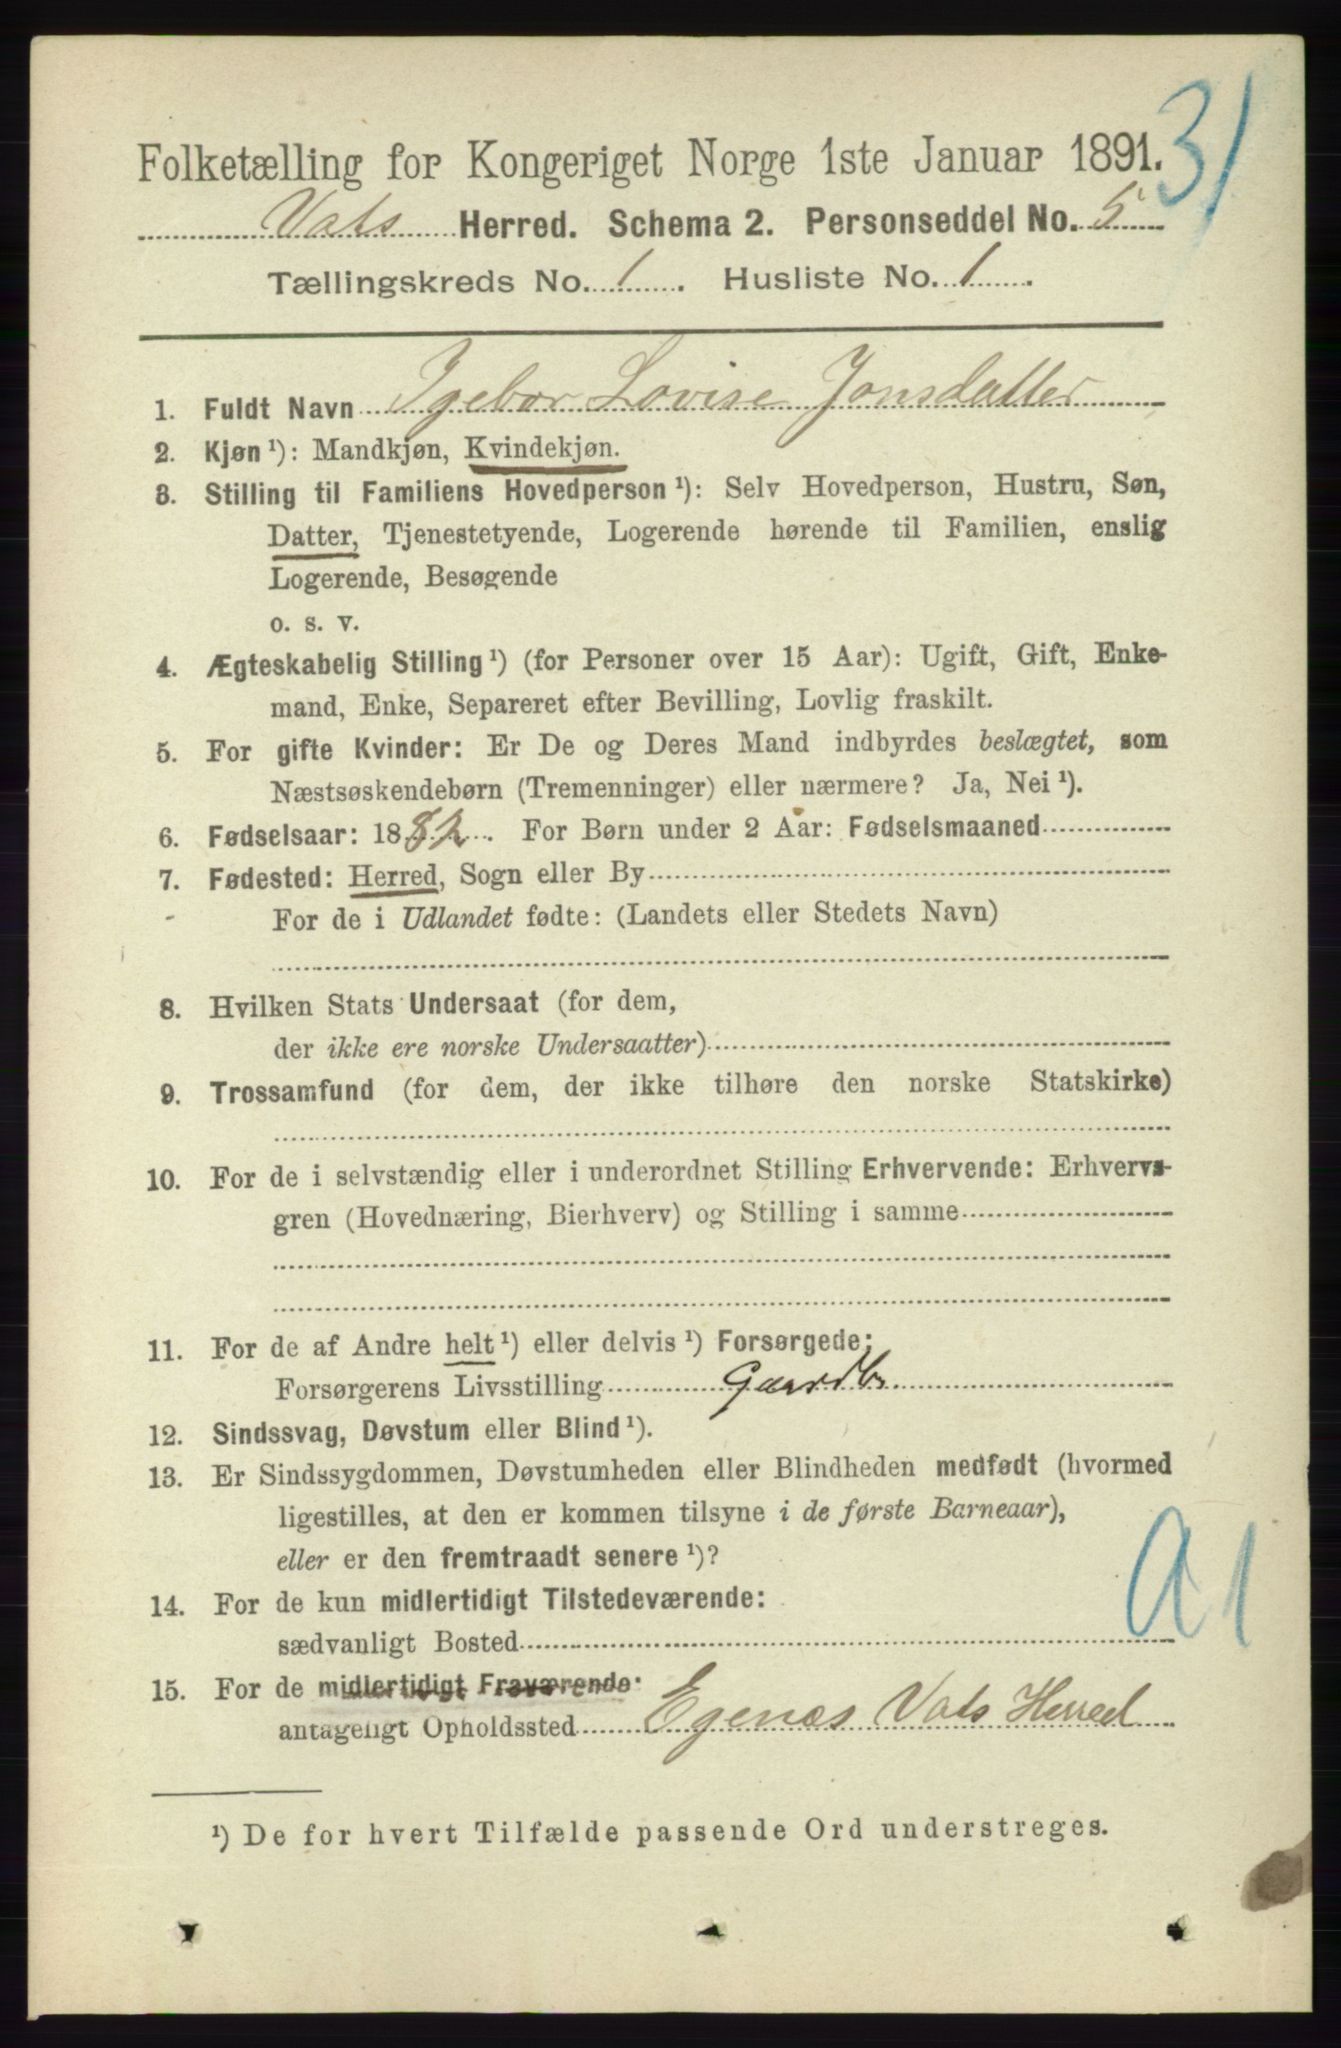 31
Folketælling for Kongeriget Norge 1ste Januar 1891.
Vats Herred. Schema 2. Personseddel No. 5
Tællingskreds No. 1. Husliste No. 1.
1. Fuldt Navn Igebor Lovise Jonsdatter
2. Kjøn ¹): Mandkjøn, Kvindekjøn.
3. Stilling til Familiens Hovedperson ¹): Selv Hovedperson, Hustru, Søn,
Datter, Tjenestetyende, Logerende hørende til Familien, enslig
Logerende, Besøgende
o. s. v.
4. Ægteskabelig Stilling ¹) (for Personer over 15 Aar): Ugift, Gift, Enke-
mand, Enke, Separeret efter Bevilling, Lovlig fraskilt.
5. For gifte Kvinder: Er De og Deres Mand indbyrdes beslægtet, som
Næstsøskendebørn (Tremenninger) eller nærmere? Ja, Nei ¹).
6. Fødselsaar: 1882. For Børn under 2 Aar: Fødselsmaaned
7. Fødested: Herred, Sogn eller By
For de i Udlandet fødte: (Landets eller Stedets Navn)
8. Hvilken Stats Undersaat (for dem,
der ikke ere norske Undersaatter)
9. Trossamfund (for dem, der ikke tilhøre den norske Statskirke)
10. For de i selvstændig eller i underordnet Stilling Erhvervende: Erhvervs-
gren (Hovednæring, Bierhverv) og Stilling i samme
11. For de af Andre helt ¹) eller delvis ¹) Forsørgede:
Forsørgerens Livsstilling Gaardbr
12. Sindssvag, Døvstum eller Blind ¹).
13. Er Sindssygdommen, Døvstumheden eller Blindheden medfødt (hvormed
ligestilles, at den er kommen tilsyne i de første Barneaar),
eller er den fremtraadt senere ¹)?
A1
14. For de kun midlertidigt Tilstedeværende:
sædvanligt Bosted
15. For de midlertidigt Fraværende:
antageligt Opholdssted Egenæs Vats Herred
¹) De for hvert Tilfælde passende Ord understreges.